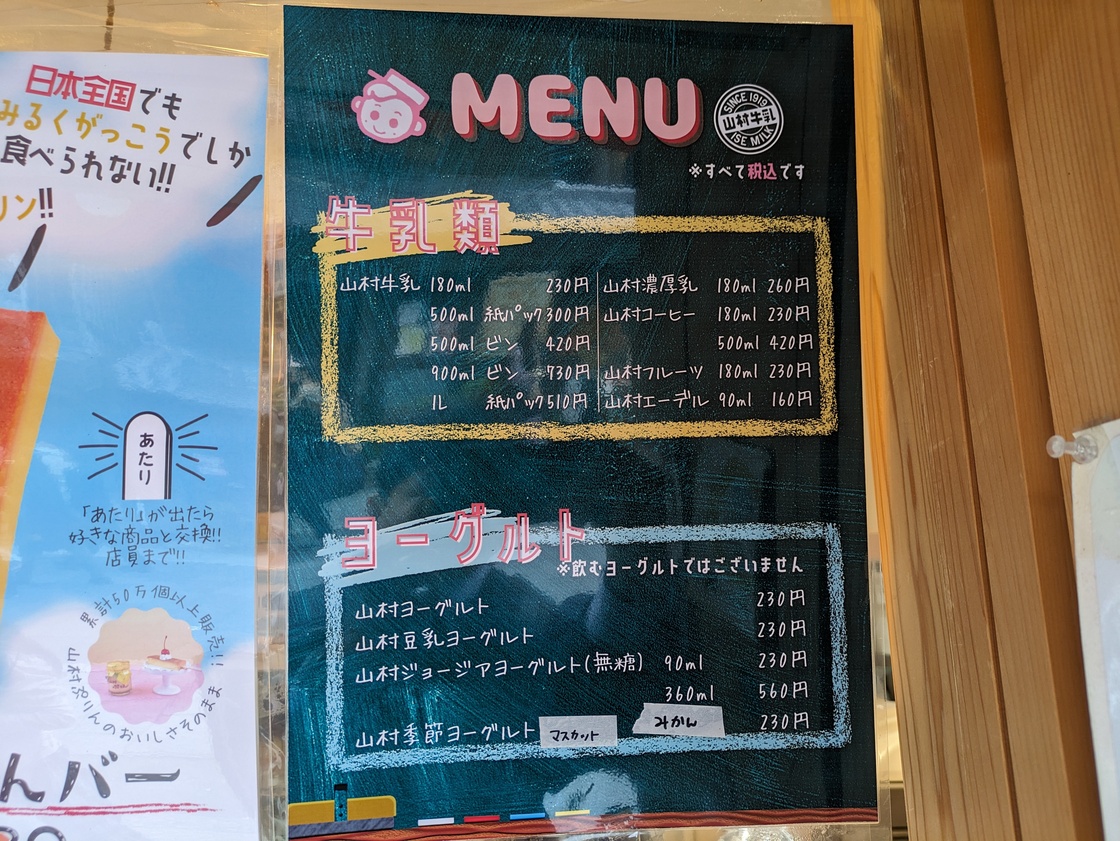 日本全国でも
みるくがっこうでしか
食べられない!!
リン!!
あたり
「あたり」が出たら
好きな商品と交換!!
店員まで!!
累計50万個以上販売!!
山村ぷりんのおいしさそのまま
んバー
MENU
SINCE 1919
山村牛乳
ISE MILK
※すべて税込です
牛乳類
山村牛乳 180ml 230円
500ml 紙パック 300円
500ml ビン 420円
900ml ビン 730円
1L 紙パック 510円
山村濃厚乳 180ml 260円
山村コーヒー 180ml 230円
500ml 420円
山村フルーツ 180ml 230円
山村エーデル 90ml 160円
ヨーグルト
※飲むヨーグルトではございません
山村ヨーグルト 230円
山村豆乳ヨーグルト 230円
山村ジョージアヨーグルト(無糖) 90ml 230円
360ml 560円
山村季節ヨーグルト マスカット みかん 230円